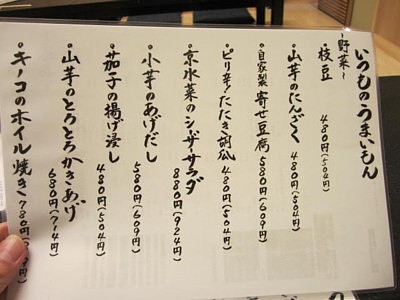 いつものうまいもん
~野菜~
・枝豆 480円(504円)
・山芋のたんざく 480円(504円)
・自家製寄せ豆腐 580円(609円)
・ピリ辛!たたき胡瓜 480円(504円)
・京水菜のシーザーサラダ 880円(924円)
・小芋のあげだし 580円(609円)
・茄子の揚げ浸し 480円(504円)
・山芋のとろとろかきあげ 680円(714円)
・キノコのホイル焼き 780円